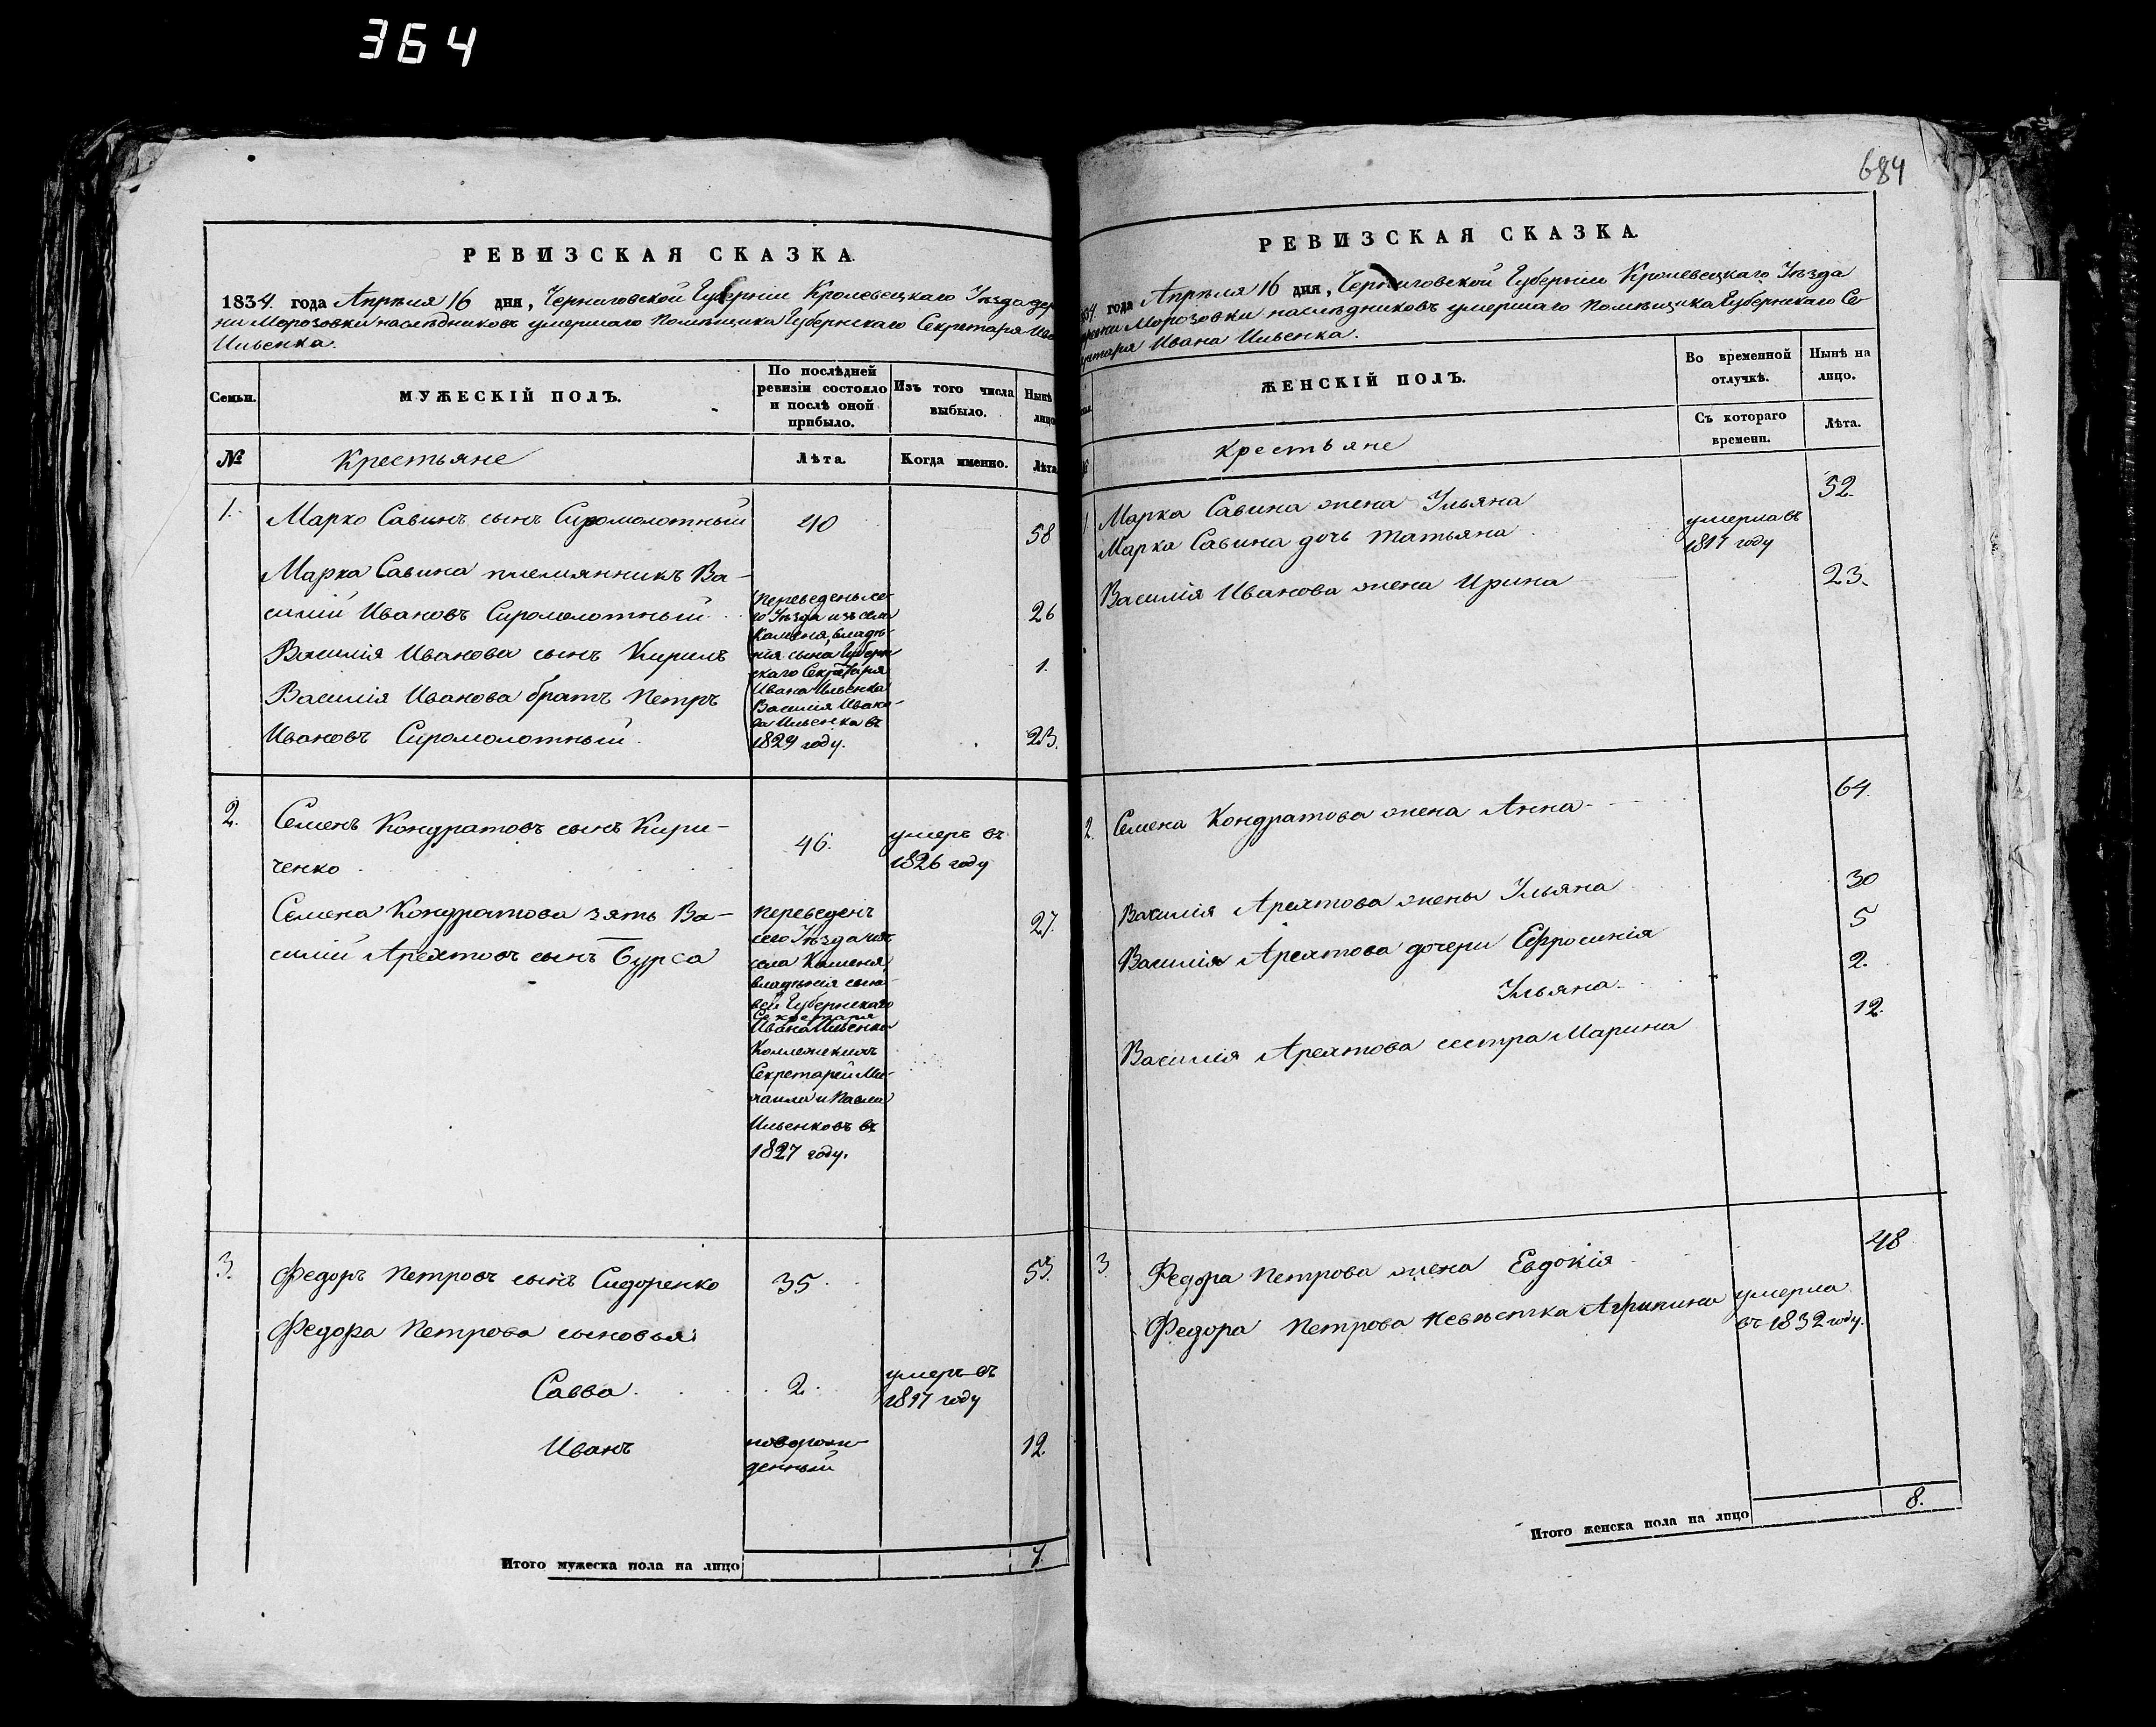 364
684
РЕВИЗСКАЯ СКАЗКА.
1834. года Апрѣля 16 дня, Черниговской Губерніи Кролевецкаго Уѣзда дер
ни Морозовки наслѣдниковъ умершаго Помѣщика Губернскаго Секретаря Ива
Ильенка.
Семьи. МУЖЕСКІЙ ПОЛЪ. По послѣдней ревизіи состояло и послѣ оной прибыло. Изъ того числа выбыло. Нынѣ лицо
№ Крестьяне Лѣта. Когда именно. Лѣта
1. Марко Савинъ сынъ Сиромолотный 40 58
Марка Савина племянникъ Ва-
силій Ивановъ Сиромолотный 26
Василія Иванова сынъ Кирилъ 1.
Василія Иванова братъ Петръ
Ивановъ Сиромолотный. 23.
Переведены се-
го Уѣзда изъ села
Каменя, владѣ-
нія сына Губерн
скаго Секретаря
Ивана Ильенка
Василія Ивано-
ва Ильенка въ
1829 году.
2. Семенъ Кондратовъ сынъ Кири-
ченко 46. умеръ въ
1826 году
Семена Кондратова зять Ва- 27.
силій Арехтовъ сынъ Бурса
Переведенъ
сего Уѣзда изъ
села Каменя,
владѣнія сыно-
вей Губернскаго
Секретаря
Ивана Ильенка
Коллежскихъ
Секретарей Ми-
хаила и Павла
Ильенковъ въ
1827 году.
3. Федоръ Петровъ сынъ Сидоренко 35 53.
Федора Петрова сыновья:
Савва 2. умеръ въ
1817 году
Иванъ новорож-
денный 12.
Итого мужеска пола на лицо 7.
РЕВИЗСКАЯ СКАЗКА.
834. года Апрѣля 16 дня, Черниговской Губерніи Кролевецкаго Уѣзда
ревни Морозовки наслѣдниковъ умершаго Помѣщика Губернскаго Се-
кретаря Ивана Ильенка.
ЖЕНСКІЙ ПОЛЪ. Во временной отлучкѣ. Нынѣ на лицо.
Съ котораго времени. Лѣта.
№ Крестьяне
1 Марка Савина жена Ульяна 52.
Марка Савина дочь Татьяна умерла въ
1817 году
Василія Иванова жена Ирина 23.
2. Семена Кондратова жена Анна 64.
Василія Арехтова жена Ульяна 30
Василія Арехтова дочери Ефросинія 5
Ульяна 2.
Василія Арехтова сестра Марина 12.
3. Федора Петрова жена Евдокія 48
Федора Петрова невѣстка Агрипина умерла
въ 1832 году.
Итого женска пола на лицо 8.